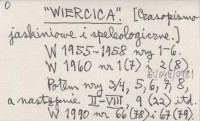 0
"WIERCICA". [Czasopismo
jaskiniowe i speleologiczne.]
W 1955-1958 nry 1-6.
W 1960 nr 1(7) i 2(8)
Potem nry 3/4, 5, 6, 7, 8,
a następnie II-VIII, 9 (22) itd.
W 1990 nr 66 (78) i 67 (79)